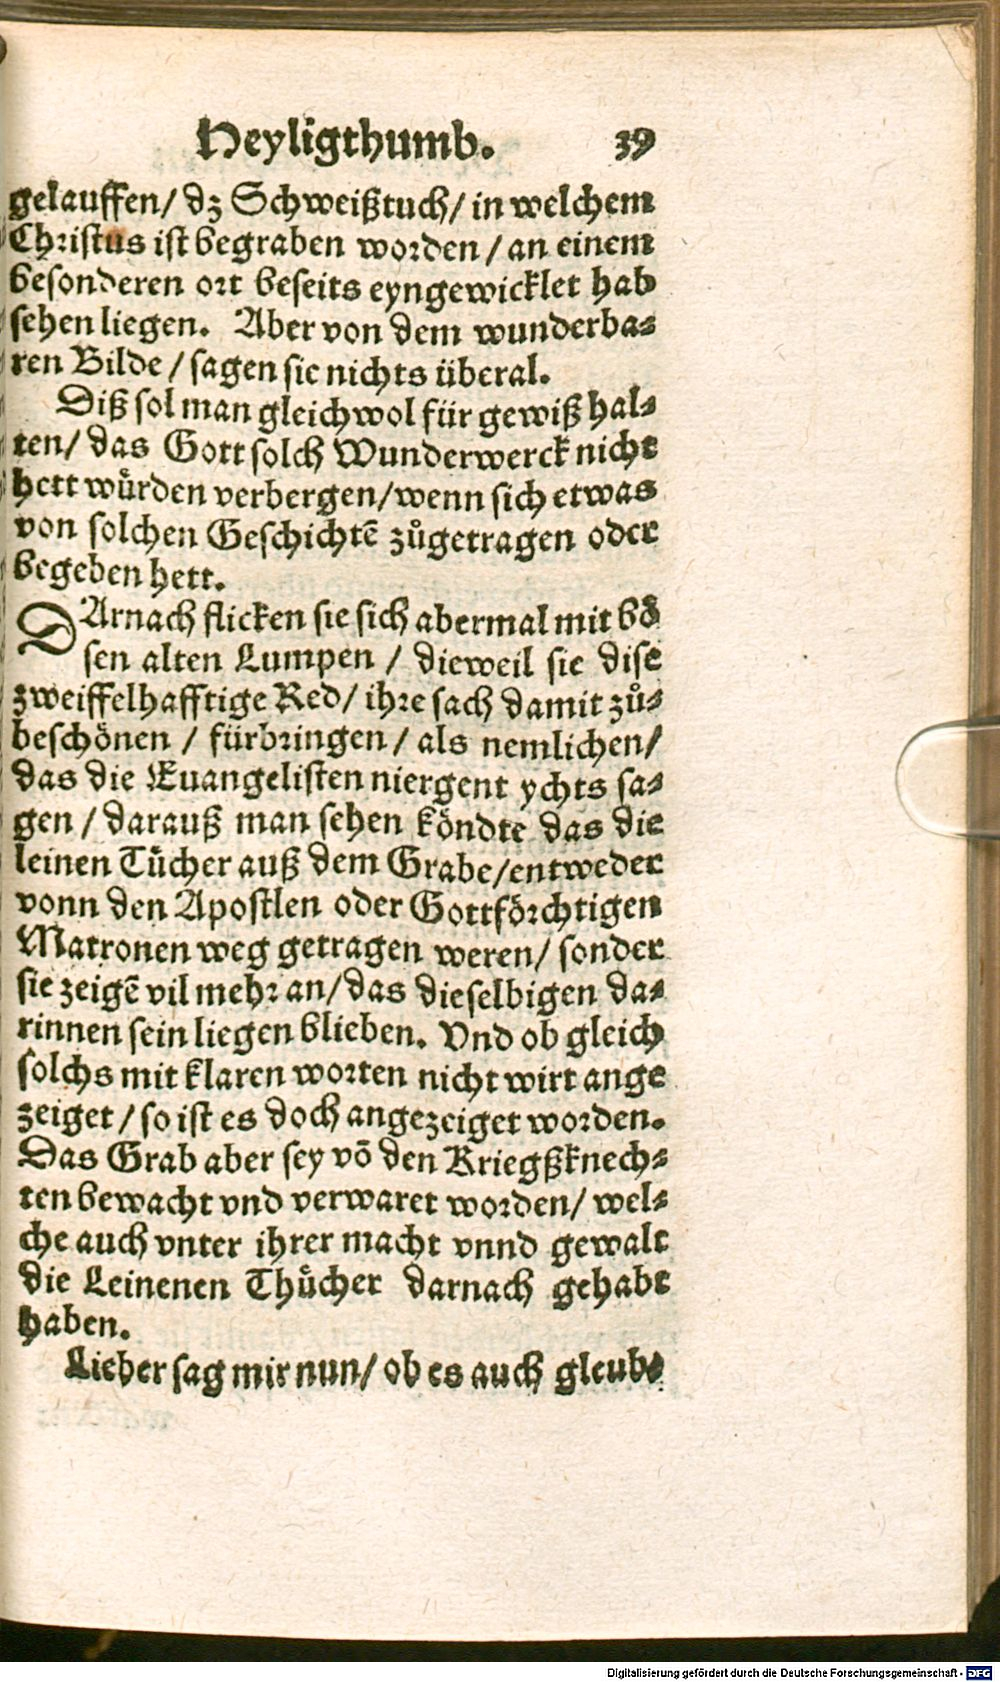 Heyligthumb. 39
gelauffen/ dz Schweißtuch/ in welchem
Christus ist begraben worden / an einem
besonderen ort beseits eyngewicklet hab
sehen liegen. Aber von dem wunderba⸗
ren Bilde / sagen sie nichts überal.
Diß sol man gleichwol für gewiß hal⸗
ten/ das Gott solch Wunderwerck nicht
hett wuͤrden verbergen/wenn sich etwas
von solchen Geschichtẽ zůgetragen oder
begeben hett.
DArnach flicken sie sich abermal mit boͤ
sen alten Lumpen / dieweil sie dise
zweiffelhafftige Red/ ihre sach damit zů⸗
beschoͤnen / fürbringen / als nemlichen/
das die Euangelisten niergent ychts sa⸗
gen / darauß man sehen koͤndte das die
leinen Tuͤcher auß dem Grabe/entweder
vonn den Apostlen oder Gottfoͤrchtigen
Matronen weg getragen weren/ sonder
sie zeigẽ vil mehr an/das dieselbigen da⸗
rinnen sein liegen blieben. Vnd ob gleich
solchs mit klaren worten nicht wirt ange
zeiget / so ist es doch angezeiget worden.
Das Grab aber sey võ den Kriegßknech⸗
ten bewacht vnd verwaret worden/ wel⸗
che auch vnter ihrer macht vnnd gewalt
die Leinenen Thuͤcher darnach gehabt
haben.
Lieber sag mir nun/ ob es auch gleub⸗
Digitalisierung gefördert durch die Deutsche Forschungsgemeinschaft - DFG